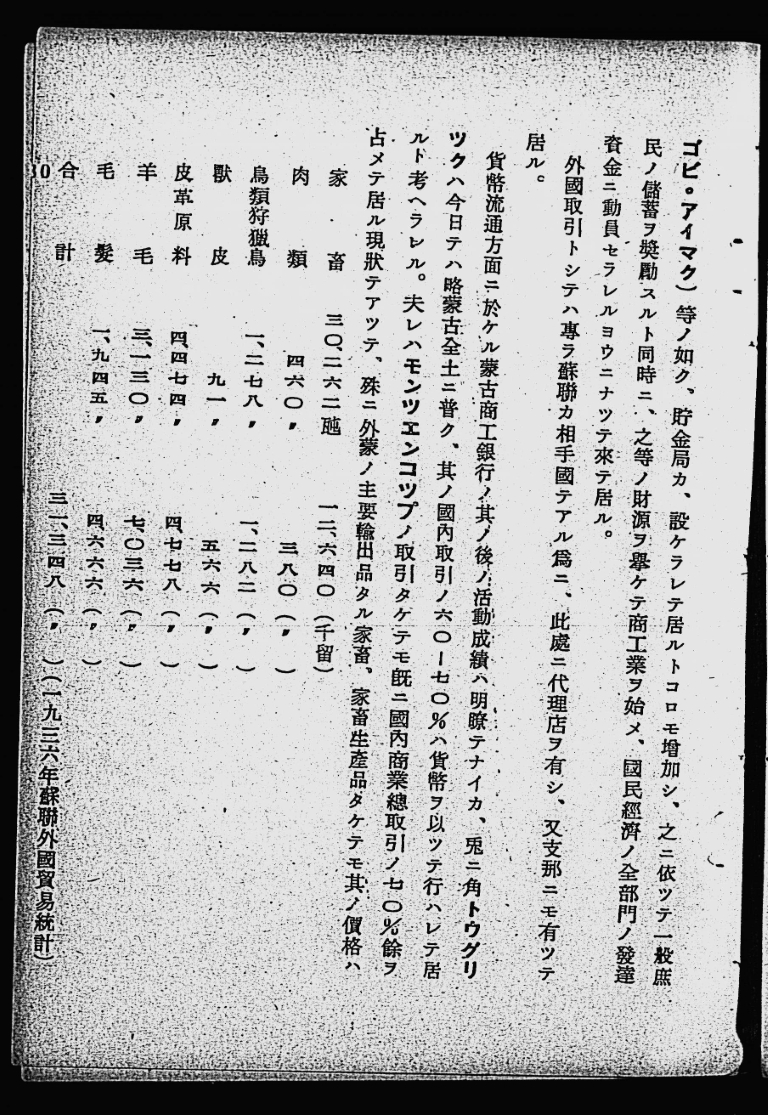 ゴビ。アイマク）等ノ如ク、貯金局カ、設ケラレテ居ルトコロモ增加シ、之ニ依ツテ一般庶
民ノ儲蓄ヲ奬勵スルト同時ニ、之等ノ財源ヲ擧ケテ商工業ヲ始メ、國民經濟ノ全部門ノ發達
資金ニ動員セラレルヨウニナツテ來テ居ル。
外國取引トシテハ專ラ蘇聯カ相手國テアル爲ニ、此處ニ代理店ヲ有シ、又支那ニモ有ツテ
居ル。
貨幣流通方面ニ於ケル蒙古商工銀行ノ其ノ後ノ活動成績ハ明瞭テナイカ、兎ニ角トウグリ
ツクハ今日テハ略蒙古全土ニ普ク、其ノ國內取引ノ六〇ー七〇％ハ貨幣ヲ以ツテ行ハレテ居
ルト考ヘラレル。夫レハモンツエンコツプノ取引タケテモ既ニ國內商業總取引ノ七〇％餘ヲ
占メテ居ル現狀テアツテ、殊ニ外蒙ノ主要輸出品タル家畜、家畜生產品タケテモ其ノ價格ハ
家畜 三〇、二六二瓲 一二、六四〇（千留）
肉類 四六〇〃 三八〇（〃）
鳥類狩獵鳥 一、二七八〃 一、二八二（〃）
獸皮 九一〃 五六六（〃）
皮革原料 四、四七四〃 四、七七八（〃）
羊毛 三、一三〇〃 七、〇三六（〃）
毛髮 一、九四五〃 四、六六六（〃）
合計 三一、三四八（〃）（一九三六年蘇聯外國貿易統計）